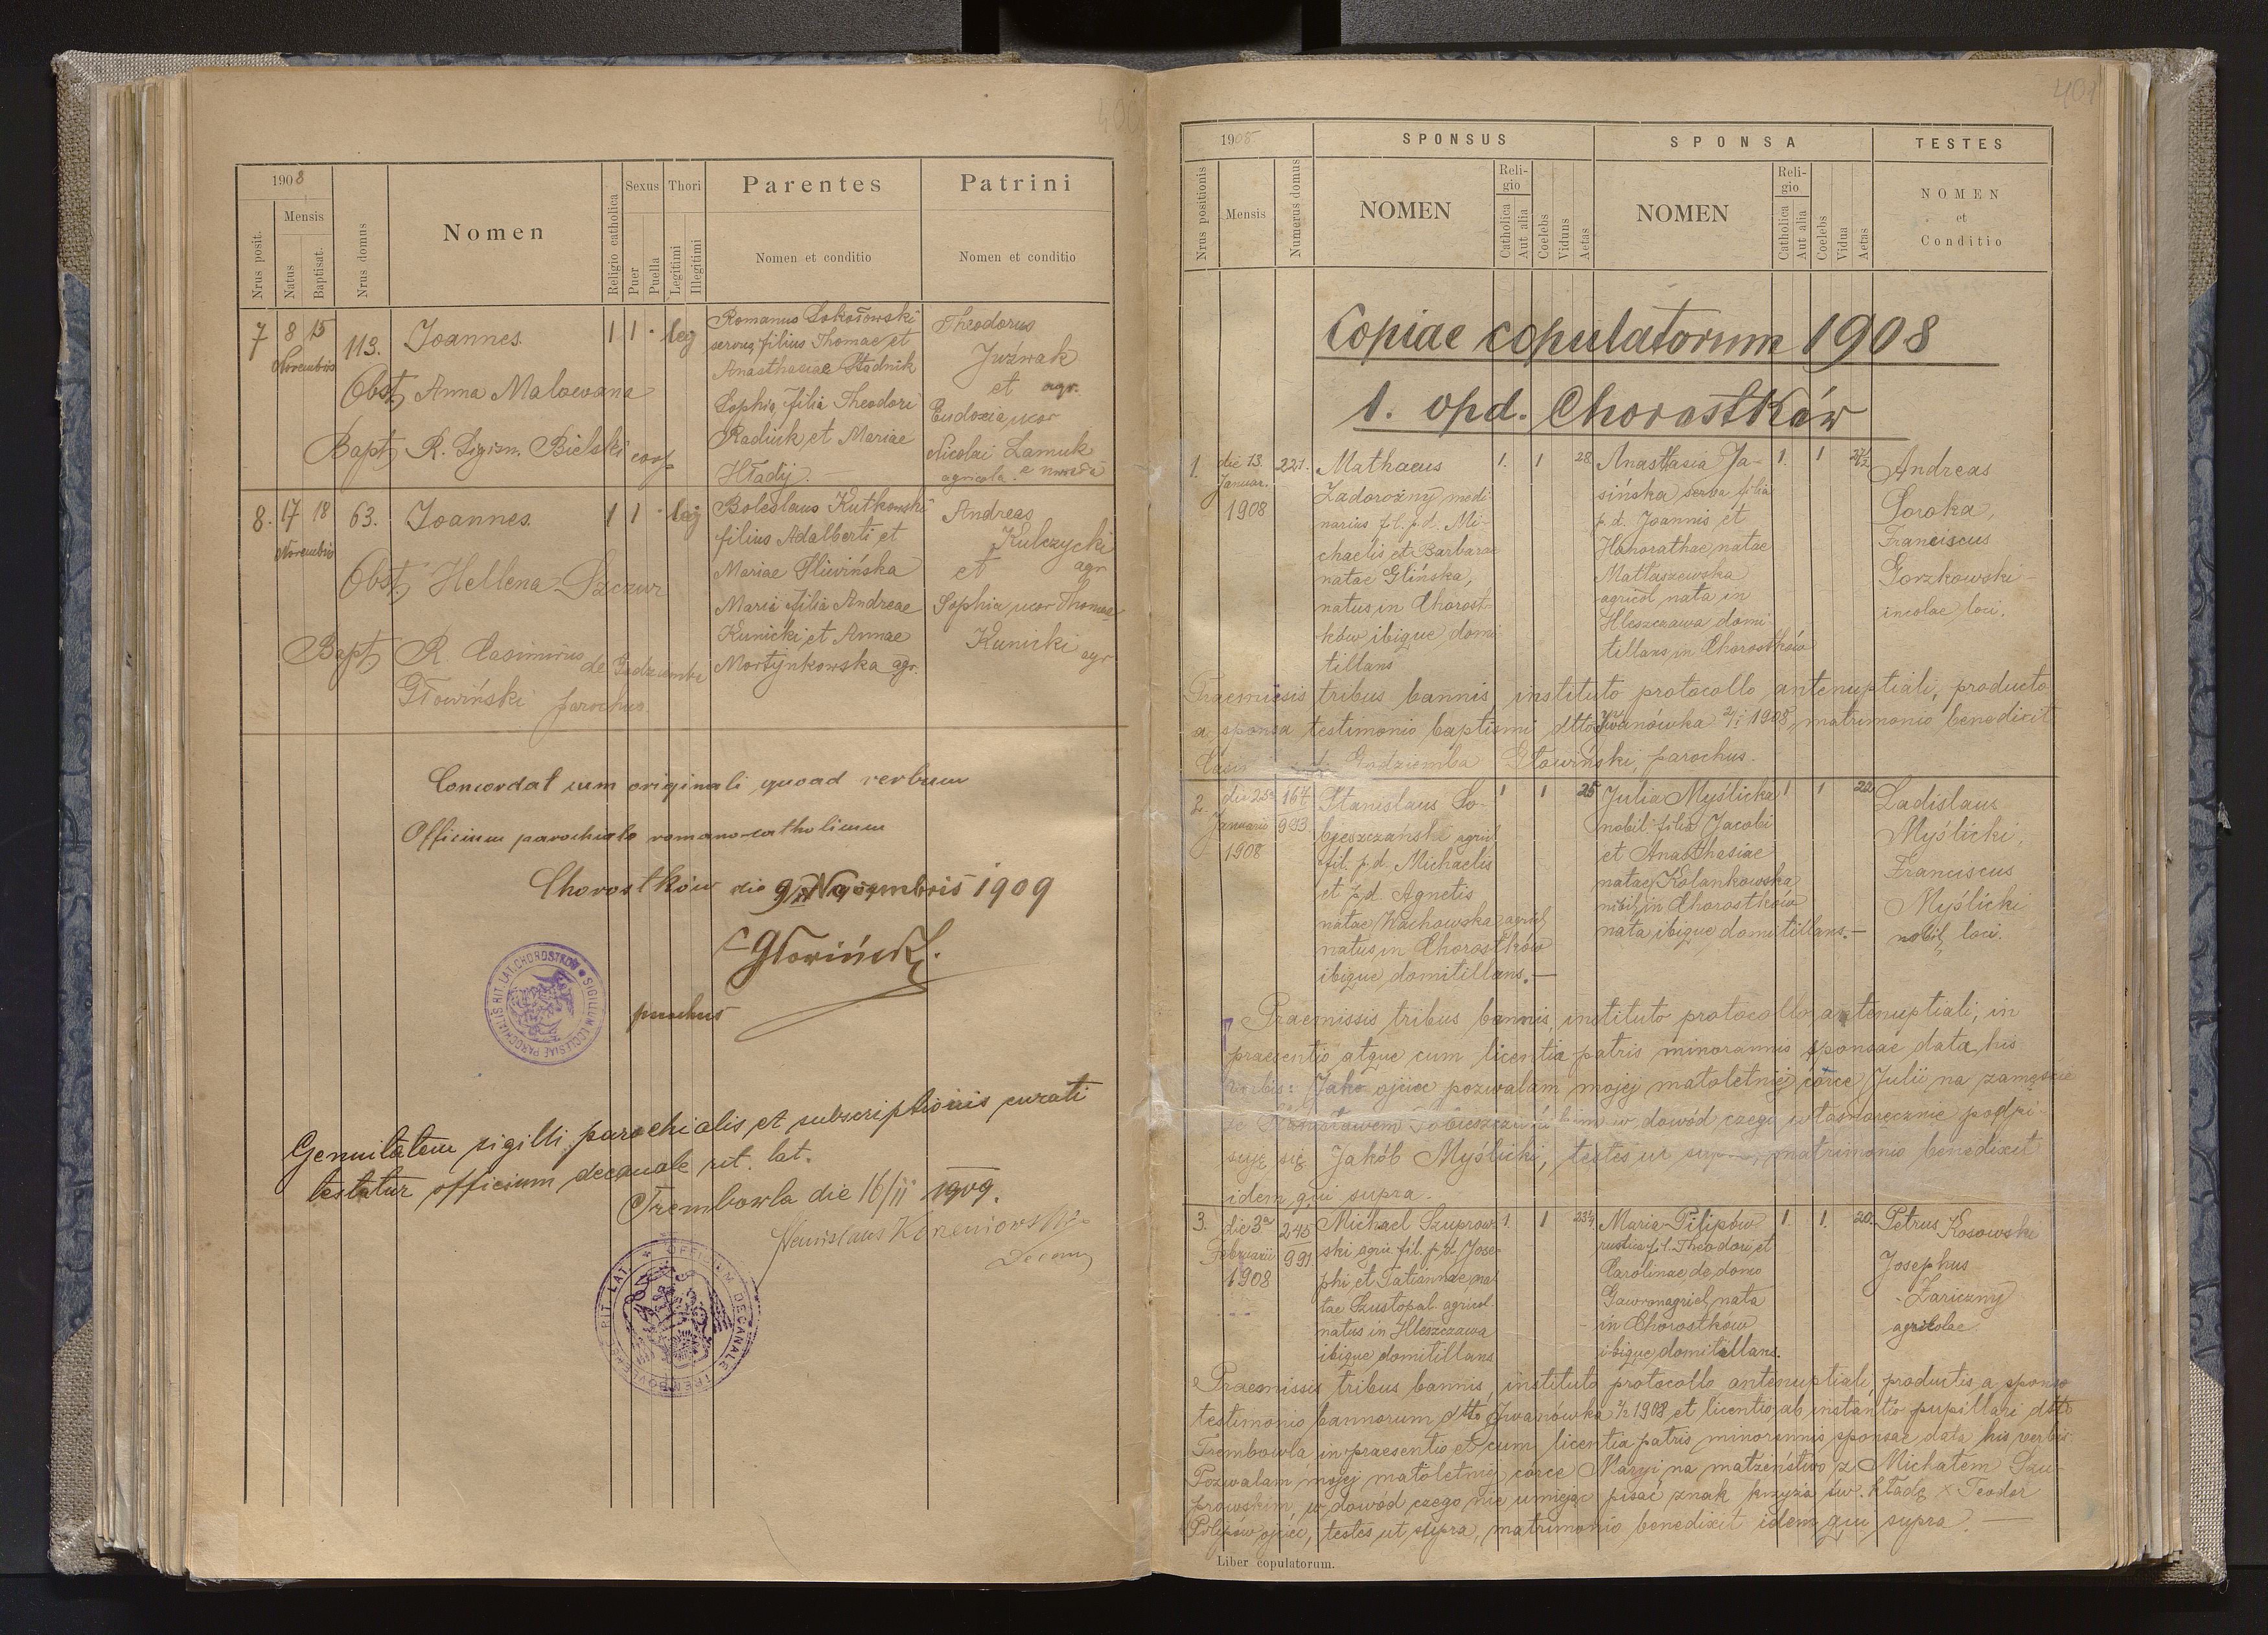 400
1908
Mensis
Nrus posit.
Natus
Baptisat.
Nrus domus
Nomen
Religio catholica
Sexus
Puer
Puella
Thori
Legitimi
Illegitimi
Parentes
Nomen et conditio
Patrini
Nomen et conditio
7 8 15 Novembris 113. Joannes. 1 1 · leg
Obst. Anna Malowana
Bapt. R. Sigism. Bielski coop
Romanus Sokołowski
servus, filius Thomae et
Anasthasiae Stadnik
Sophia, filia Theodori
Radiuk et Mariae
Hładij.
Theodorus
Juźwak
et agr.
Eudoxia uxor
Nicolai Lamuk
agricola.
8. 17 18 Novembris 63. Joannes. 1 1 · leg
Obst. Hellena Szczur
Bapt. R. Casimirus de Godziemba
Głowiński parochus.
Boleslaus Kutkowski
filius Adalberti et
Mariae Sliwińska
Maria filia Andreae
Kunicki et Annae
Martynkowska agr.
Andreas
Kulczycki
et agr
Sophia uxor Thomae
Kunicki agr
Concordat cum originali quoad verbum
Officium parochiale romano-catholicum
Chorostków die 9 Novembris 1909
Głowiński.
parochus
SIGILLUM ECCLESIAE PAROCHIALIS RIT. LAT. CHOROSTKÓW
Genuitatem sigilli parochialis et subscriptionis curati
testatur officium decanale rit. lat.
Trembowla die 16/11 1909.
Stanislaus Korzeniowski
Decanus
OFFICIUM DECANALE TREMBOVLENSE RIT. LAT.
401
1908
Nrus positionis
Mensis
Numerus domus
SPONSUS
NOMEN
Religio
Catholica
Aut alia
Coelebs
Viduus
Aetas
SPONSA
NOMEN
Religio
Catholica
Aut alia
Coelebs
Vidua
Aetas
TESTES
NOMEN
et
Conditio
Copiae copulatorum 1908
1. opd. Chorostków
1. die 13. Januar. 1908 221.
Mathaeus 1. 1 28
Zadorożny medi-
narius fil. p.d. Mi-
chaelis et Barbarae
natae Glińska,
natus in Chorost-
ków ibique domi
tillans
Anastasia Ja- 1. 1
sińska serva filia
p.d. Joannis et
Honorathae natae
Mattaszewska
agricol nata in
Hleszczawa domi
tillans in Chorostków
Andreas
Soroka,
Franciscus
Gorzkowski
incolae loci.
Praemissis tribus bannis, instituto protocollo antenuptiali, producto
a sponsa testimonio baptismi dtto Iwanówka 2/1 1908, matrimonio benedixit
Godziemba Głowiński, parochus.
2. die 25a Januario 1908 167 993
Stanislaus So- 1 1 25
bieszczański agricol
fil. p.d. Michaelis
et p.d. Agnetis
natae Wachowska agricol
natus in Chorostków
ibique domitillans.
Julia Myślicka 1 1 22
nobil. filia Jacobi
et Anasthasiae
natae Kolankowska
nobil. in Chorostków
nata ibique domitillans.
Ladislaus
Myślicki,
Franciscus
Myślicki
nobil. loci.
Praemissis tribus bannis, instituto protocollo antenuptiali, in
praesentio atque cum licentia patris minorannis sponsae data his
verbis: Jako ojciec pozwalam mojej małoletniej córce Julii na zamęście
ze Stanisławem Sobieszczańskim w dowód czego własnoręcznie podpi-
suję się Jakób Myślicki, testes ut supra, matrimonio benedixit
idem qui supra.
3. die 3a Februarii 1908 245 991
Michael Szuprow- 1. 1 23¼
ski agric. fil. p.d. Jose-
phi et Tatiannae na-
tae Szustopal. agricol.
natus in Hleszczawa
ibique domitillans
Maria Pilipów 1. 1. 20.
rustica fil. Theodori et
Carolinae de domo
Gawron agricol, nata
in Chorostków
ibique domitillans.
Petrus Kosowski
Josephus
Zariczny
agricolae.
Praemissis tribus bannis, instituto protocollo antenuptiali, productis a sponso
testimonio bannorum dtto Iwanówka 2/2 1908 et licentio ab instantio pupillari dtto
Trembowla in praesentio et cum licentia patris minorannis sponsae data his verbis:
Pozwalam mojej małoletniej córce Maryi na małżeństwo z Michałem Szu-
prowskim, w dowód czego nie umiejąc pisać znak krzyża św. kładę × Teodor
Pilipów ojciec, testes ut supra, matrimonio benedixit idem qui supra.
Liber copulatorum.